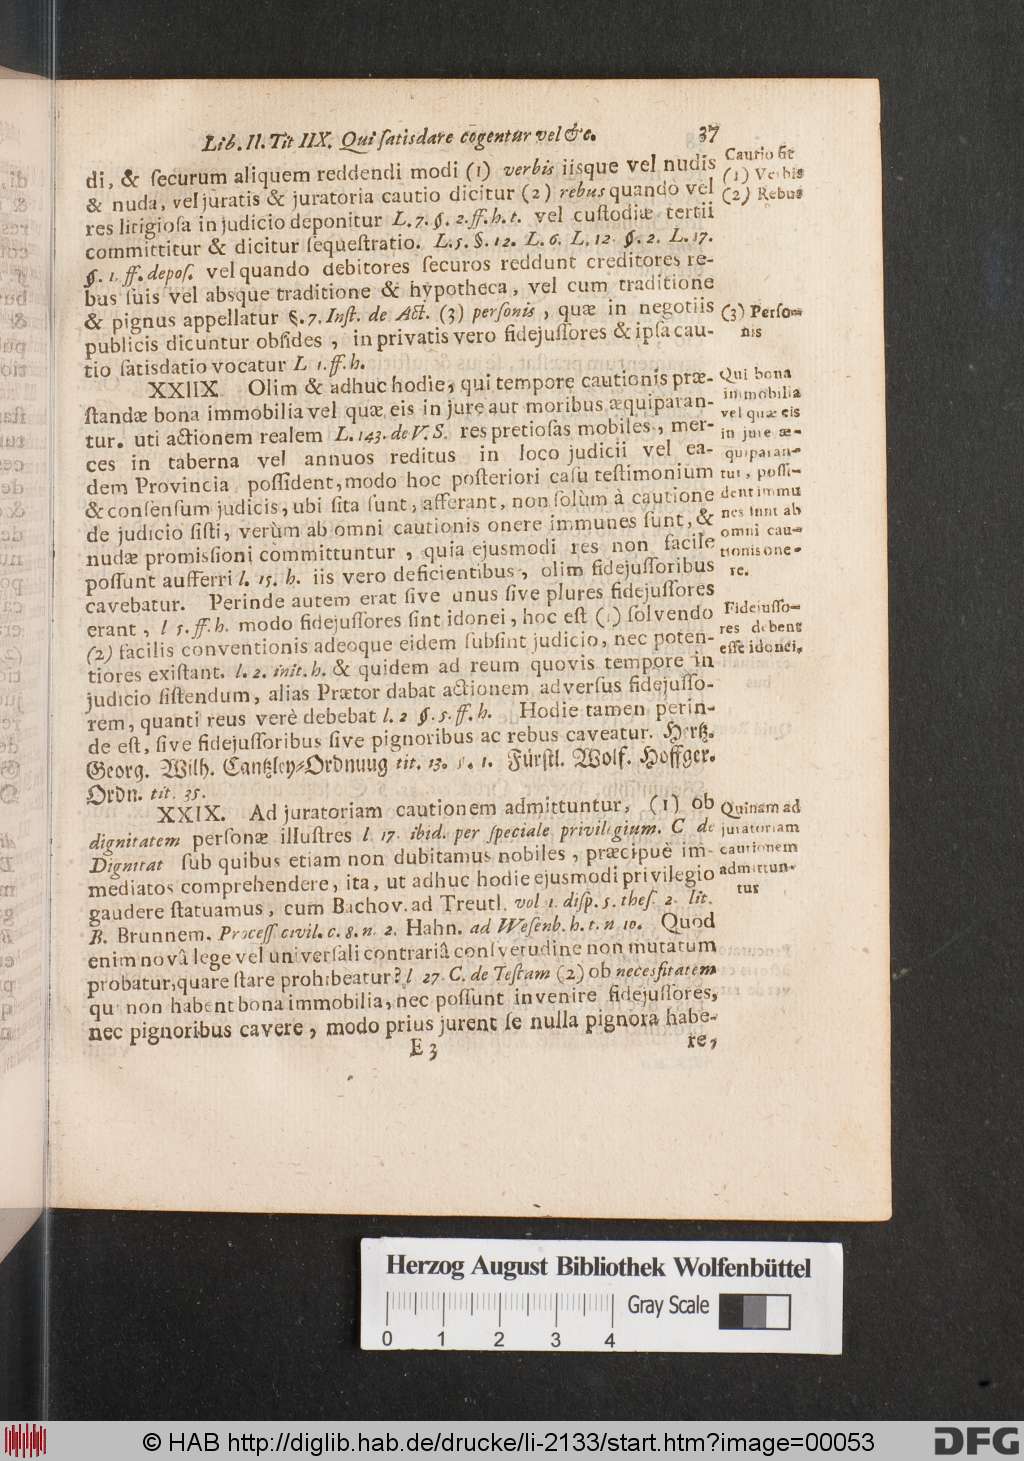 Lib. II. Tit IIX. Qui ſatisdare cogentur vel &c. 37
di, & ſecurum aliquem reddendi modi (1) verbis iisque vel nudis
& nuda, vel juratis & juratoria cautio dicitur (2) rebus quando vel
res litigioſa in judicio deponitur L. 7. §. 2. ff. h. t. vel cuſtodiæ tertii
committitur & dicitur ſequeſtratio. L. 5. §. 12. L. 6. L. 12. §. 2. L. 17.
§. 1. ff. depoſ. vel quando debitores ſecuros reddunt creditores re-
bus ſuis vel absque traditione & hypotheca, vel cum traditione
& pignus appellatur §. 7. Inſt. de Act. (3) perſonis, quæ in negotiis
publicis dicuntur obſides, in privatis vero fidejuſſores & ipſa cau-
tio ſatisdatio vocatur L 1. ff. h.
Cautio fit
(1) Verbis
(2) Rebus
(3) Perſo-
nis
XXIIX. Olim & adhuc hodie, qui tempore cautionis præ-
ſtandæ bona immobilia vel quæ eis in jure aut moribus æquiparan-
tur. uti actionem realem L. 143. de V. S. res pretioſas mobiles, mer-
ces in taberna vel annuos reditus in loco judicii vel ea-
dem Provincia poſſident, modo hoc poſteriori caſu teſtimonium
& conſenſum judicis, ubi ſita ſunt, afferant, non ſolùm à cautione
de judicio ſiſti, verùm ab omni cautionis onere immunes ſunt, &
nudæ promisſioni committuntur, quia ejusmodi res non facile
poſſunt aufferri l. 15. h. iis vero deficientibus, olim fidejuſſoribus
cavebatur. Perinde autem erat ſive unus ſive plures fidejuſſores
erant, l 5. ff. h. modo fidejuſſores ſint idonei, hoc eſt (1) ſolvendo
(2) facilis conventionis adeoque eidem ſubſint judicio, nec poten-
tiores exiſtant. l. 2. init. h. & quidem ad reum quovis tempore in
judicio ſiſtendum, alias Prætor dabat actionem adverſus fidejuſſo-
rem, quanti reus verè debebat l. 2 §. 5. ff. h. Hodie tamen perin-
de eſt, ſive fidejuſſoribus ſive pignoribus ac rebus caveatur. Hertz.
Georg. Wilh. Cantzley-Ordnuug tit. 13. §. 1. Fürſtl. Wolf. Hoffger.
Ordn. tit. 35.
Qui bona
immobilia
vel quæ eis
in jure æ-
quiparan-
tur, poſſi-
dent immu
nes ſunt ab
omni cau-
tionis one-
re.
Fidejuſſo-
res debent
eſſe idonei.
XXIX. Ad juratoriam cautionem admittuntur, (1) ob
dignitatem perſonæ illuſtres l 17. ibid. per ſpeciale privilegium. C de
Dignitat ſub quibus etiam non dubitamus nobiles, præcipuè im-
mediatos comprehendere, ita, ut adhuc hodie ejusmodi privilegio
gaudere ſtatuamus, cum Bachov. ad Treutl. vol 1. diſp. 5. theſ. 2. lit.
B. Brunnem. Proceſſ. civil. c. 8. n. 2. Hahn. ad Weſenb. h. t. n 10. Quod
enim novâ lege vel univerſali contrariâ conſvetudine non mutatum
probatur, quare ſtare prohibeatur? l 27. C. de Teſtam (2) ob necesſitatem
qui non habent bona immobilia, nec poſſunt invenire fidejuſſores,
nec pignoribus cavere, modo prius jurent ſe nulla pignora habe-
Quinam ad
juratoriam
cautionem
admittun-
tur
E 3 re,
Herzog August Bibliothek Wolfenbüttel
0 1 2 3 4
Gray Scale
© HAB http://diglib.hab.de/drucke/li-2133/start.htm?image=00053
DFG